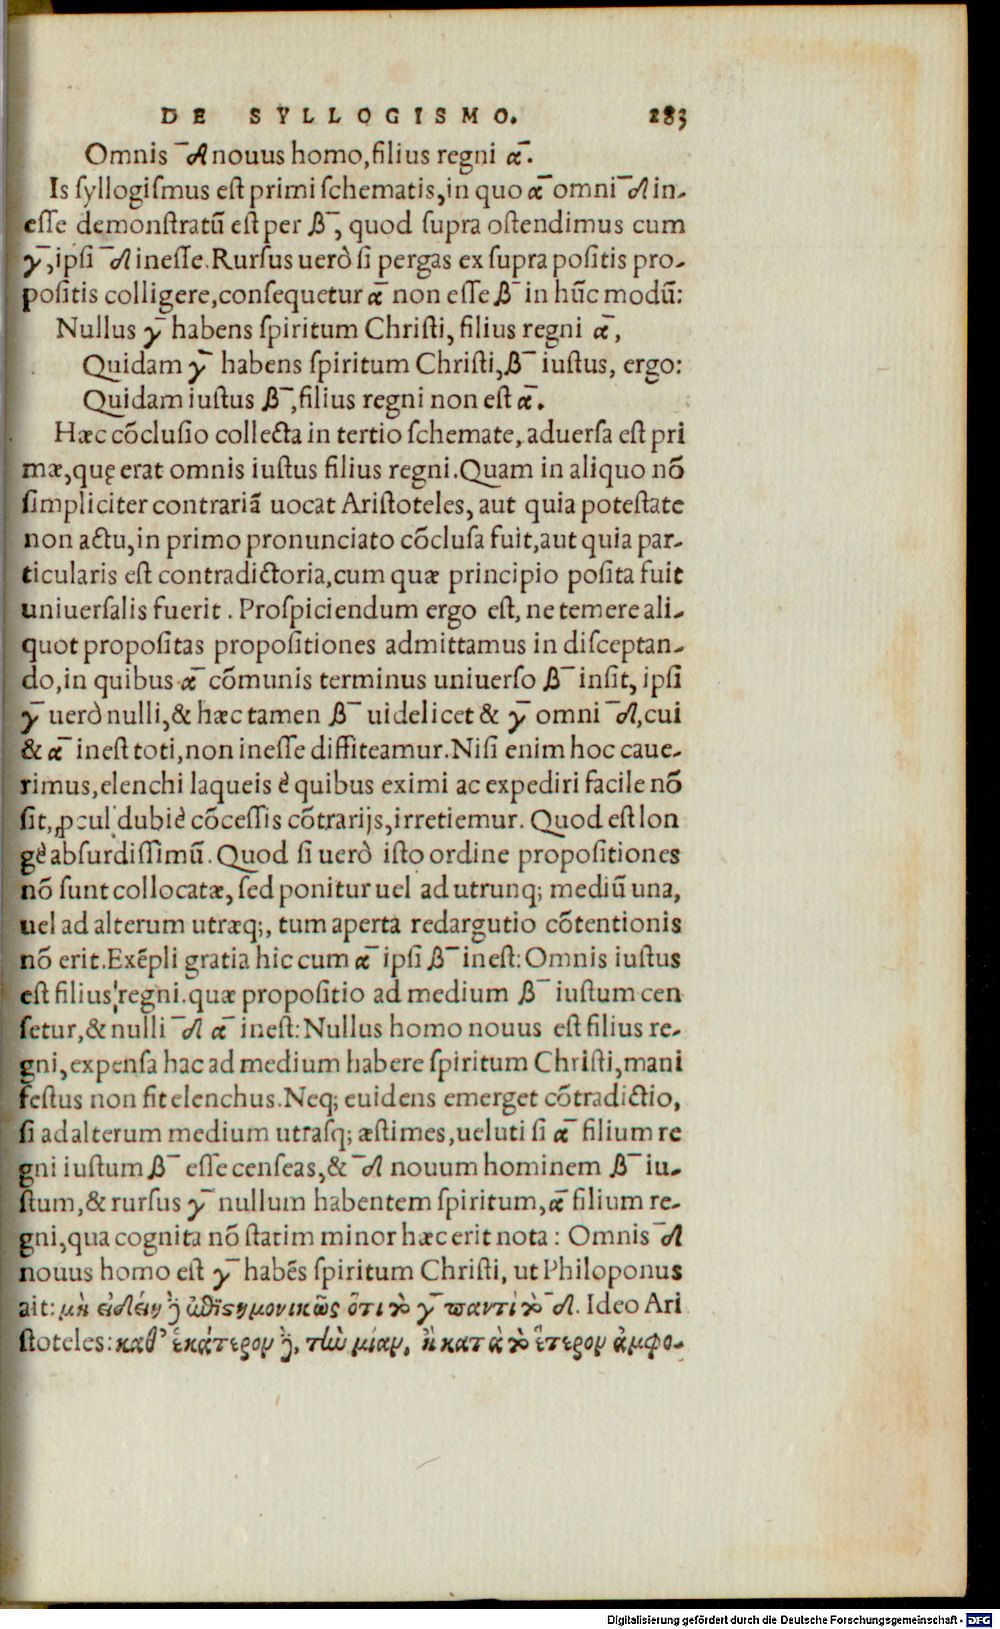 DE SYLLOGISMO. 283
Omnis ‾δ nouus homo, filius regni α‾.
Is syllogismus est primi schematis, in quo α‾ omni ‾δ in-
esse demonstratũ est per β‾, quod supra ostendimus cum
γ‾, ipsi ‾δ inesse. Rursus uerò si pergas ex supra positis pro-
positis colligere, consequetur α‾ non esse β‾ in hũc modũ:
Nullus γ‾ habens spiritum Christi, filius regni α‾,
Quidam γ‾ habens spiritum Christi, β‾ iustus, ergo:
Quidam iustus β‾, filius regni non est α‾.
Hæc cõclusio collecta in tertio schemate, aduersa est pri
mæ, quę erat omnis iustus filius regni. Quam in aliquo nõ
simpliciter contrariã uocat Aristoteles, aut quia potestate
non actu, in primo pronunciato cõclusa fuit, aut quia par-
ticularis est contradictoria, cum quæ principio posita fuit
uniuersalis fuerit. Prospiciendum ergo est, ne temere ali-
quot propositas propositiones admittamus in disceptan-
do, in quibus α‾ cõmunis terminus uniuerso β‾ insit, ipsi
γ‾ uerò nulli, & hæc tamen β‾ uidelicet & γ‾ omni ‾δ, cui
& α‾ inest toti, non inesse diffiteamur. Nisi enim hoc caue-
rimus, elenchi laqueis è quibus eximi ac expediri facile nõ
sit, ꝓcul dubiè cõcessis cõtrarijs, irretiemur. Quod est lon
gè absurdissimũ. Quod si uerò isto ordine propositiones
nõ sunt collocatæ, sed ponitur uel ad utrunq; mediũ una,
uel ad alterum utræq;, tum aperta redargutio cõtentionis
nõ erit. Exẽpli gratia hic cum α‾ ipsi β‾ inest: Omnis iustus
est filius regni. quæ propositio ad medium β‾ iustum cen
setur, & nulli ‾δ α‾ inest: Nullus homo nouus est filius re-
gni, expensa hac ad medium habere spiritum Christi, mani
festus non fit elenchus. Neq; euidens emerget cõtradictio,
si ad alterum medium utrasq; æstimes, ueluti si α‾ filium re
gni iustum β‾ esse censeas, & ‾δ nouum hominem β‾ iu-
stum, & rursus γ‾ nullum habentem spiritum, α‾ filium re-
gni, qua cognita nõ statim minor hæc erit nota: Omnis ‾δ
nouus homo est γ‾ habẽs spiritum Christi, ut Philoponus
ait: μὴ εἰδέιη ὃ ὅτι τὸ γ‾ παντὶ τῷ ‾δ. Ideo Ari
stoteles: καθ’ ἑκάτερον ᾖ, τὼ μίαν, ἢ κατὰ τὸ ἕτερον ἀμφο-
Digitalisierung gefördert durch die Deutsche Forschungsgemeinschaft - DFG